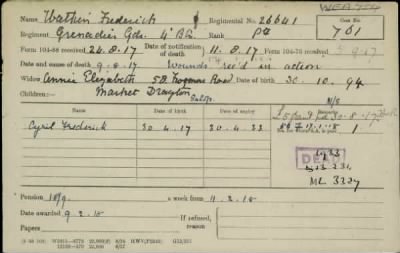 Name Watkin Frederick Regimental No. 26641
Regiment Grenadier Gds. 4th Bn. Rank Pte Case No. 761
Form 104-88 received 24.8.17 Date of notification of death 11.8.17 Form 104-76 received 5.9.17
Date and cause of death 9.8.17 Wounds rec'd in action
Widow Annie Elizabeth 58 Frogmore Road Date of birth 30.10.94
Children: Market Drayton
Salop.
Cyril Frederick 30.4.17 30.4.33
DEAD
Pension 18/9 a week from 11.2.18
Date awarded 9.2.18 If refused, reason
Papers